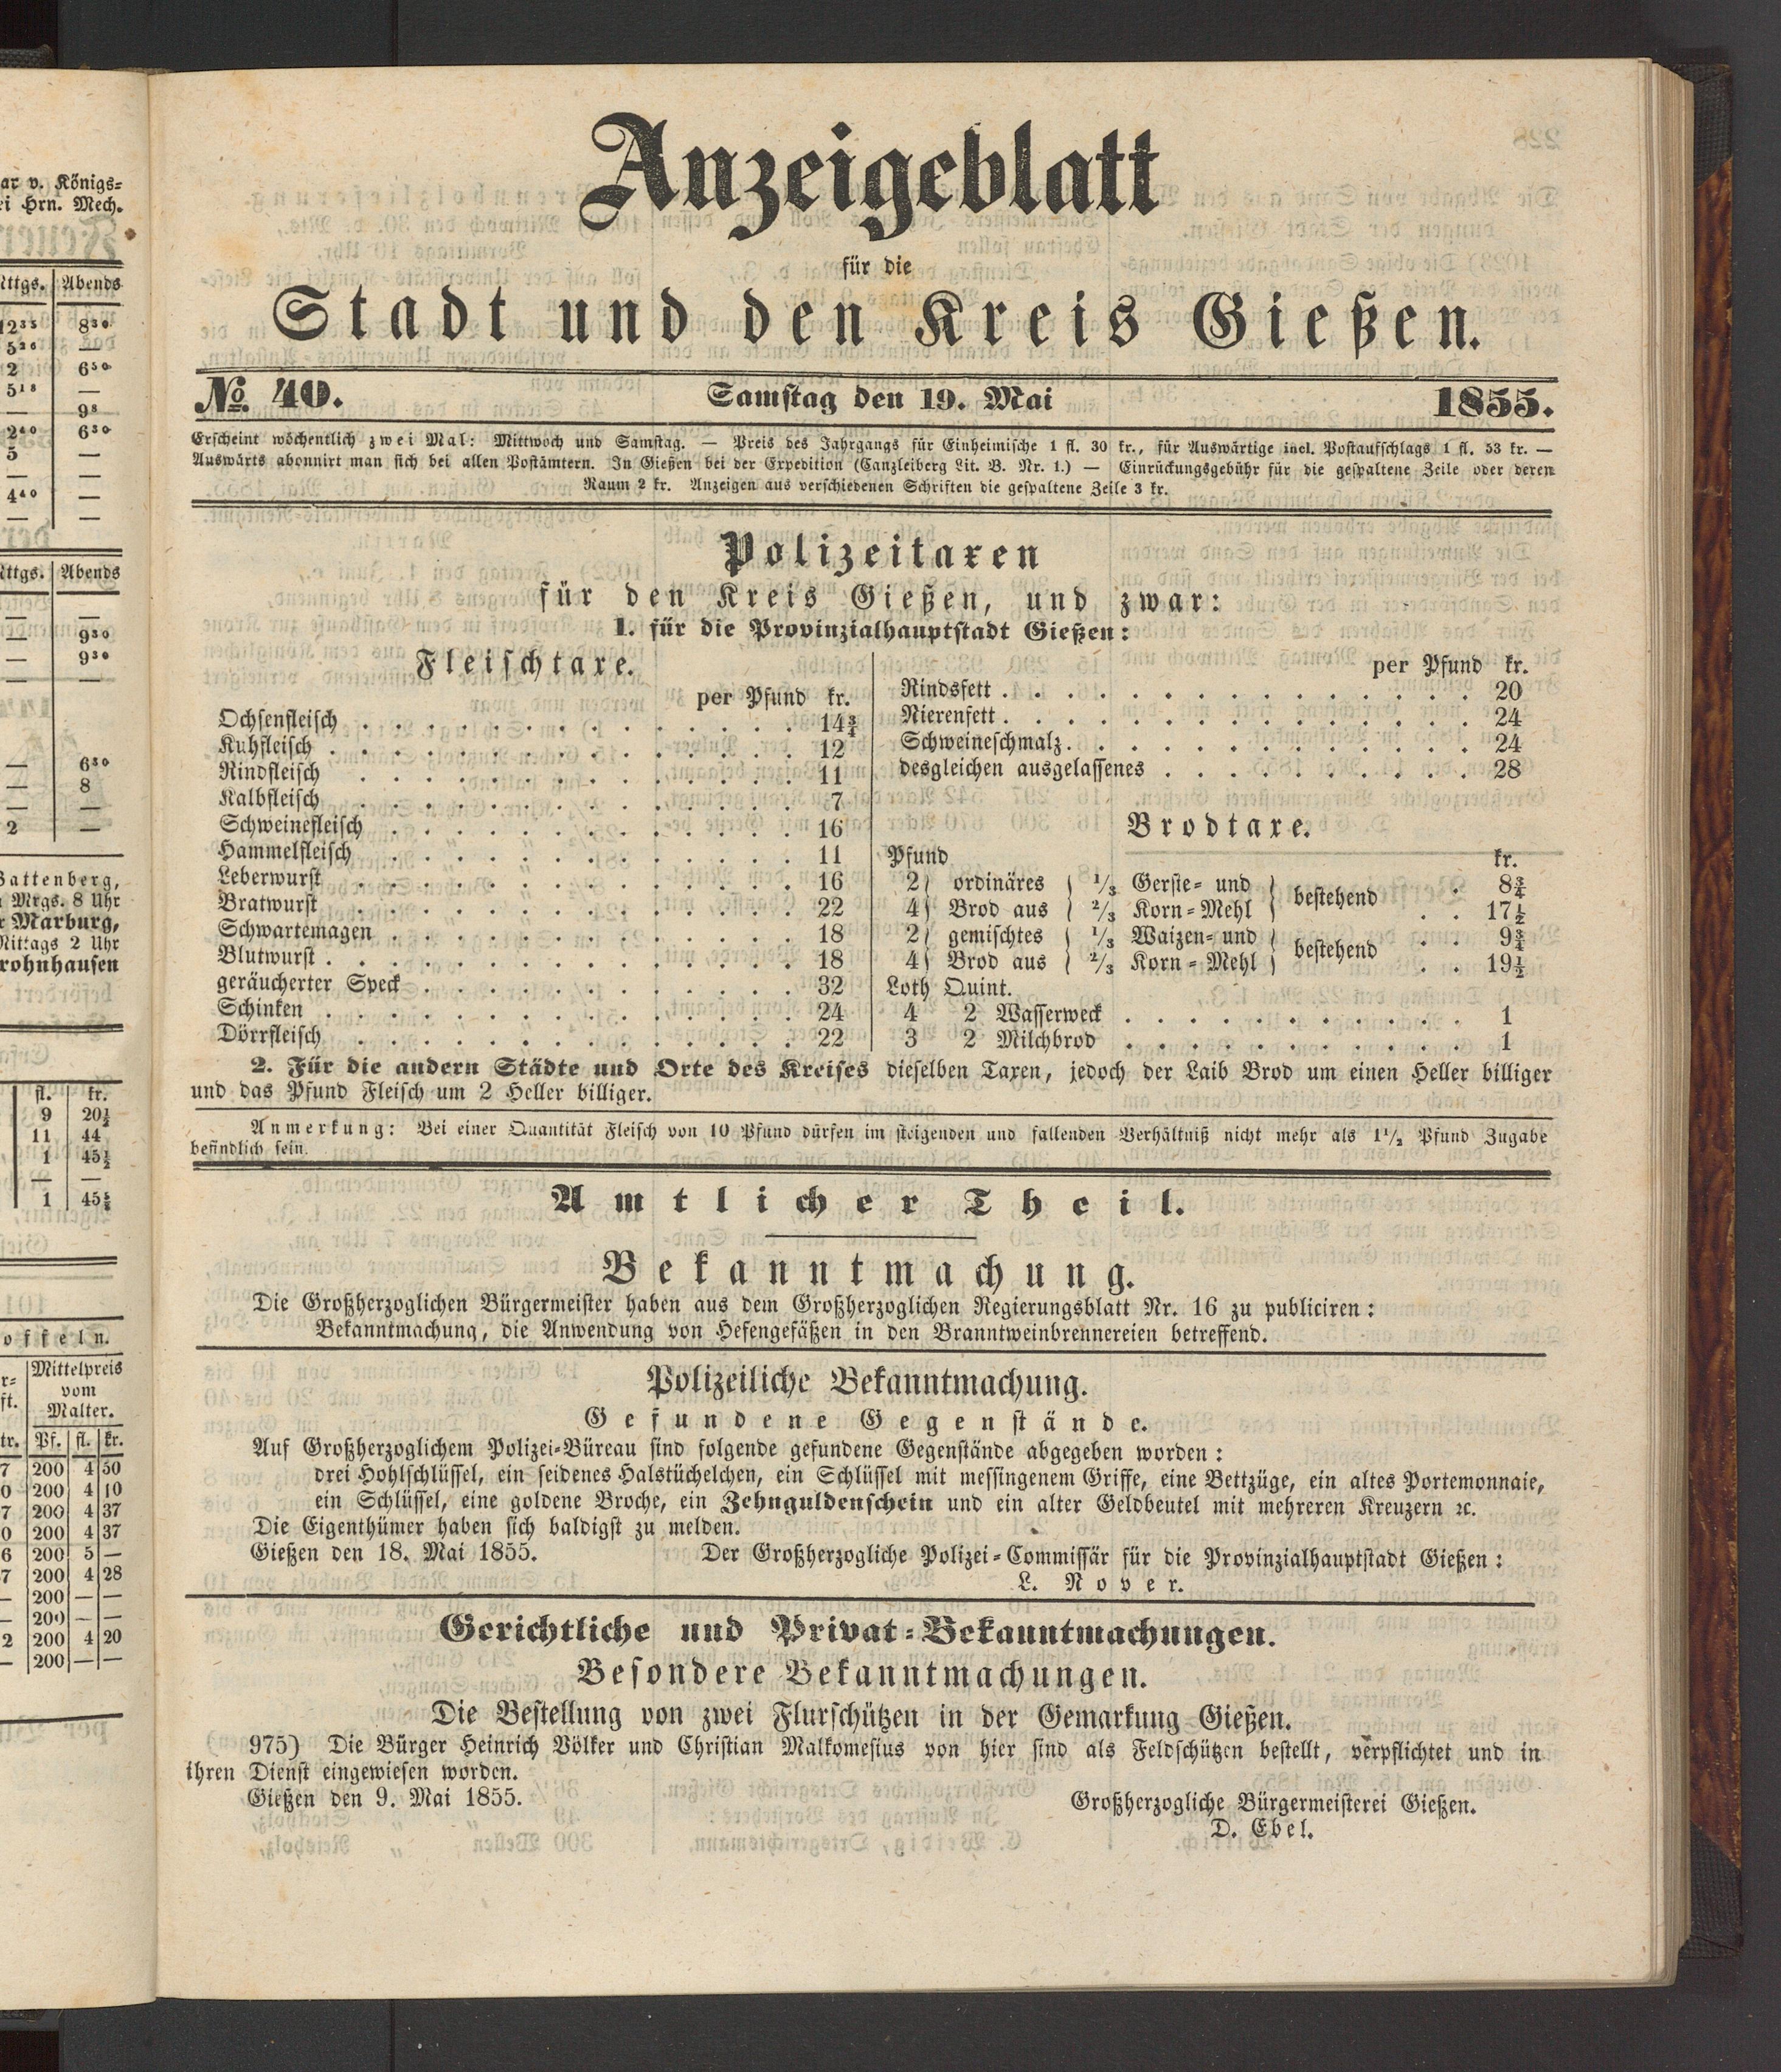 Anzeigeblatt
für die
Stadt und den Kreis Gießen.
No. 40. Samstag den 19. Mai 1855.
Erscheint wöchentlich zwei Mal: Mittwoch und Samstag. — Preis des Jahrgangs für Einheimische 1 fl. 30 kr., für Auswärtige incl. Postaufschlags 1 fl. 53 kr. —
Auswärts abonnirt man sich bei allen Postämtern. In Gießen bei der Expedition (Canzleiberg Lit. B. Nr. 1.) — Einrückungsgebühr für die gespaltene Zeile oder deren
Raum 2 kr. Anzeigen aus verschiedenen Schriften die gespaltene Zeile 3 kr.
Polizeitaxen
für den Kreis Gießen, und zwar:
1. für die Provinzialhauptstadt Gießen:
Fleischtaxe.
per Pfund kr.
Ochsenfleisch 14¾
Kuhfleisch 12
Rindfleisch 11
Kalbfleisch 7
Schweinefleisch 16
Hammelfleisch 11
Leberwurst 16
Bratwurst 22
Schwartemagen 18
Blutwurst 18
geräucherter Speck 32
Schinken 24
Dörrfleisch 22
per Pfund kr.
Rindsfett 20
Nierenfett 24
Schweineschmalz 24
desgleichen ausgelassenes 28
Brodtaxe.
Pfund kr.
2 ordinäres 1/3 Gerste- und bestehend 8¾
4 Brod aus 2/3 Korn-Mehl 17½
2 gemischtes 1/3 Waizen- und bestehend 9¾
4 Brod aus 2/3 Korn-Mehl 19½
Loth Quint.
4 2 Wasserweck 1
3 2 Milchbrod 1
2. Für die andern Städte und Orte des Kreises dieselben Taxen, jedoch der Laib Brod um einen Heller billiger
und das Pfund Fleisch um 2 Heller billiger.
Anmerkung: Bei einer Quantität Fleisch von 10 Pfund dürfen im steigenden und fallenden Verhältniß nicht mehr als 1½ Pfund Zugabe
befindlich sein.
Amtlicher Theil.
Bekanntmachung.
Die Großherzoglichen Bürgermeister haben aus dem Großherzoglichen Regierungsblatt Nr. 16 zu publiciren:
Bekanntmachung, die Anwendung von Hefengefäßen in den Branntweinbrennereien betreffend.
Polizeiliche Bekanntmachung.
Gefundene Gegenstände.
Auf Großherzoglichem Polizei-Büreau sind folgende gefundene Gegenstände abgegeben worden:
drei Hohlschlüssel, ein seidenes Halstüchelchen, ein Schlüssel mit messingenem Griffe, eine Bettzüge, ein altes Portemonnaie,
ein Schlüssel, eine goldene Broche, ein Zehnguldenschein und ein alter Geldbeutel mit mehreren Kreuzern ꝛc.
Die Eigenthümer haben sich baldigst zu melden.
Gießen den 18. Mai 1855. Der Großherzogliche Polizei-Commissär für die Provinzialhauptstadt Gießen:
L. Nover.
Gerichtliche und Privat-Bekanntmachungen.
Besondere Bekanntmachungen.
Die Bestellung von zwei Flurschützen in der Gemarkung Gießen.
975) Die Bürger Heinrich Völker und Christian Malkomesius von hier sind als Feldschützen bestellt, verpflichtet und in
ihren Dienst eingewiesen worden.
Gießen den 9. Mai 1855. Großherzogliche Bürgermeisterei Gießen.
D. Ebel.